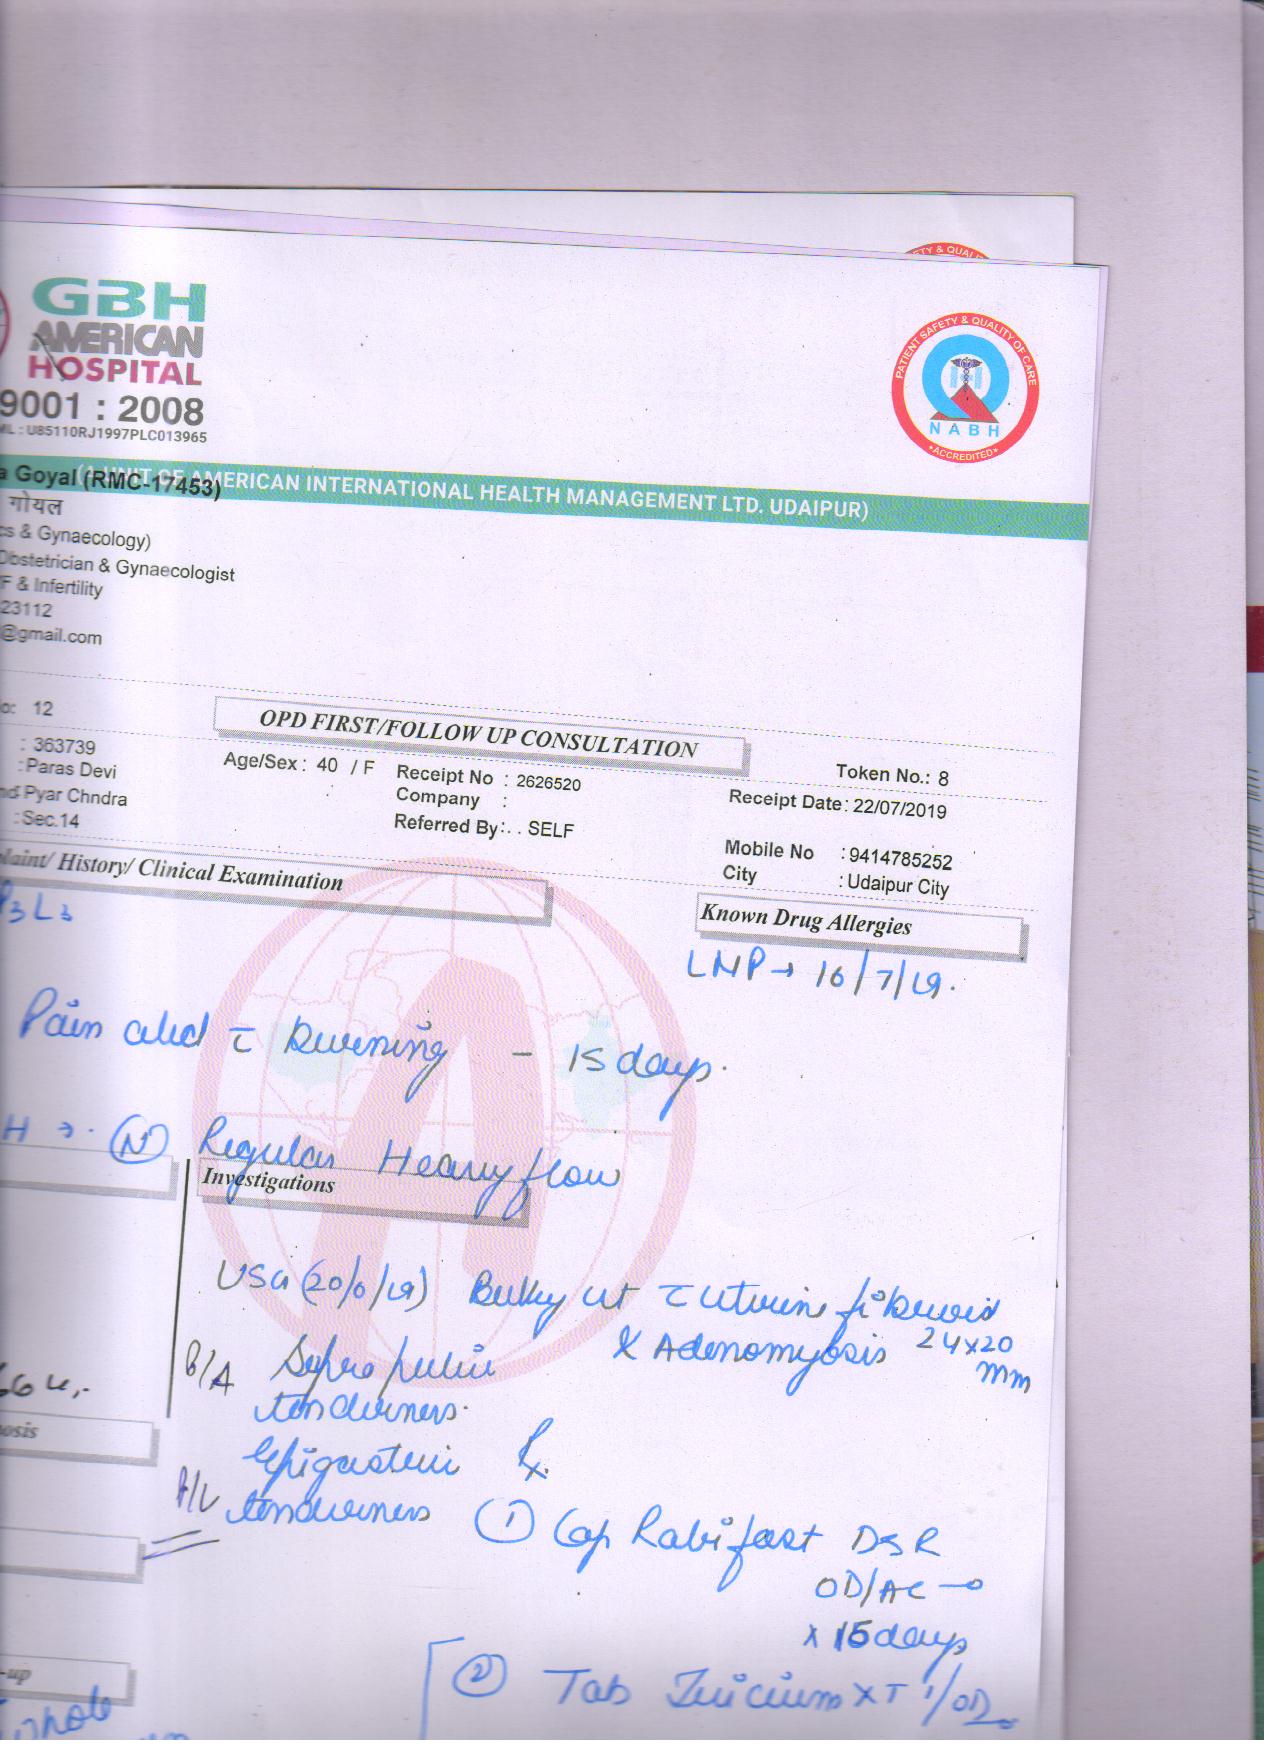 GBH
AMERICAN
HOSPITAL
9001 : 2008
U85110RJ1997PLC013965
PATIENT SAFETY & QUALITY OF CARE
NABH
ACCREDITED
(A UNIT OF AMERICAN INTERNATIONAL HEALTH MANAGEMENT LTD. UDAIPUR)
a Goyal (RMC-17453)
गोयल
cs & Gynaecology)
Obstetrician & Gynaecologist
F & Infertility
23112
@gmail.com
12
OPD FIRST/FOLLOW UP CONSULTATION
Token No.: 8
: 363739
Age/Sex : 40 / F
Receipt No : 2626520
Receipt Date: 22/07/2019
:Paras Devi
Company :
Pyar Chndra
Referred By: . . SELF
Mobile No : 9414785252
:Sec.14
City : Udaipur City
plaint/ History/ Clinical Examination
Known Drug Allergies
P3 L3
LMP → 16/7/19.
Pain abd c̄ burning - 15 days.
H → . (N) Regular Heavy flow
Investigations
USG Bulky ut c̄ uterine fibroid
& Adenomyosis 24x20
mm
P/A Supra pubic
tenderness.
Epigastric
tenderness
P/V
Rx
① Cap Rabifast DSR
OD/AC
x 15 days
② Tab XT 1/OD
osis
-up
whole